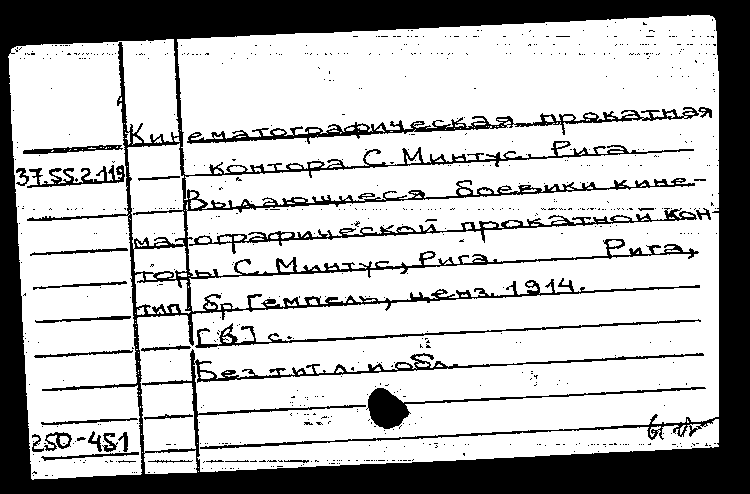 Кинематографическая прокатная
37.55.2.119
контора С. Минтус. Рига.
Выдающиеся боевики кине-
матографической прокатной кон-
торы С. Минтус, Рига. Рига,
тип. бр. Гемпель, ценз. 1914.
[8] с.
Без тит. л. и обл.
250-451